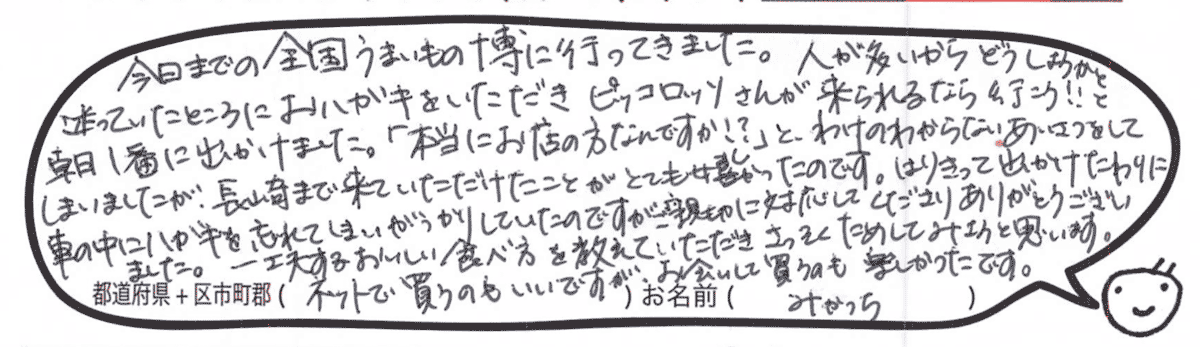 今日までの全国うまいもの博に行ってきました。人が多いからどうしようかと
迷っていたところにおハガキをいただきピッコロッソさんが来られるなら行こう!!と
朝1番に出かけました。「本当にお店の方なんですか!?」と、わけのわからないあいさつをして
しまいましたが、長崎まで来ていただけたことがとても嬉しかったのです。はりきって出かけたわりに
車の中にハガキを忘れてしまいがっかりしていたのですがご親切に対応してくださりありがとうござい
ました。一工夫するおいしい食べ方を教えていただきさっそくためしてみようと思います。
都道府県+区市町郡( ネットで買うのもいいですが、お会いして買うのも楽しかったです。
)お名前( みかっち )